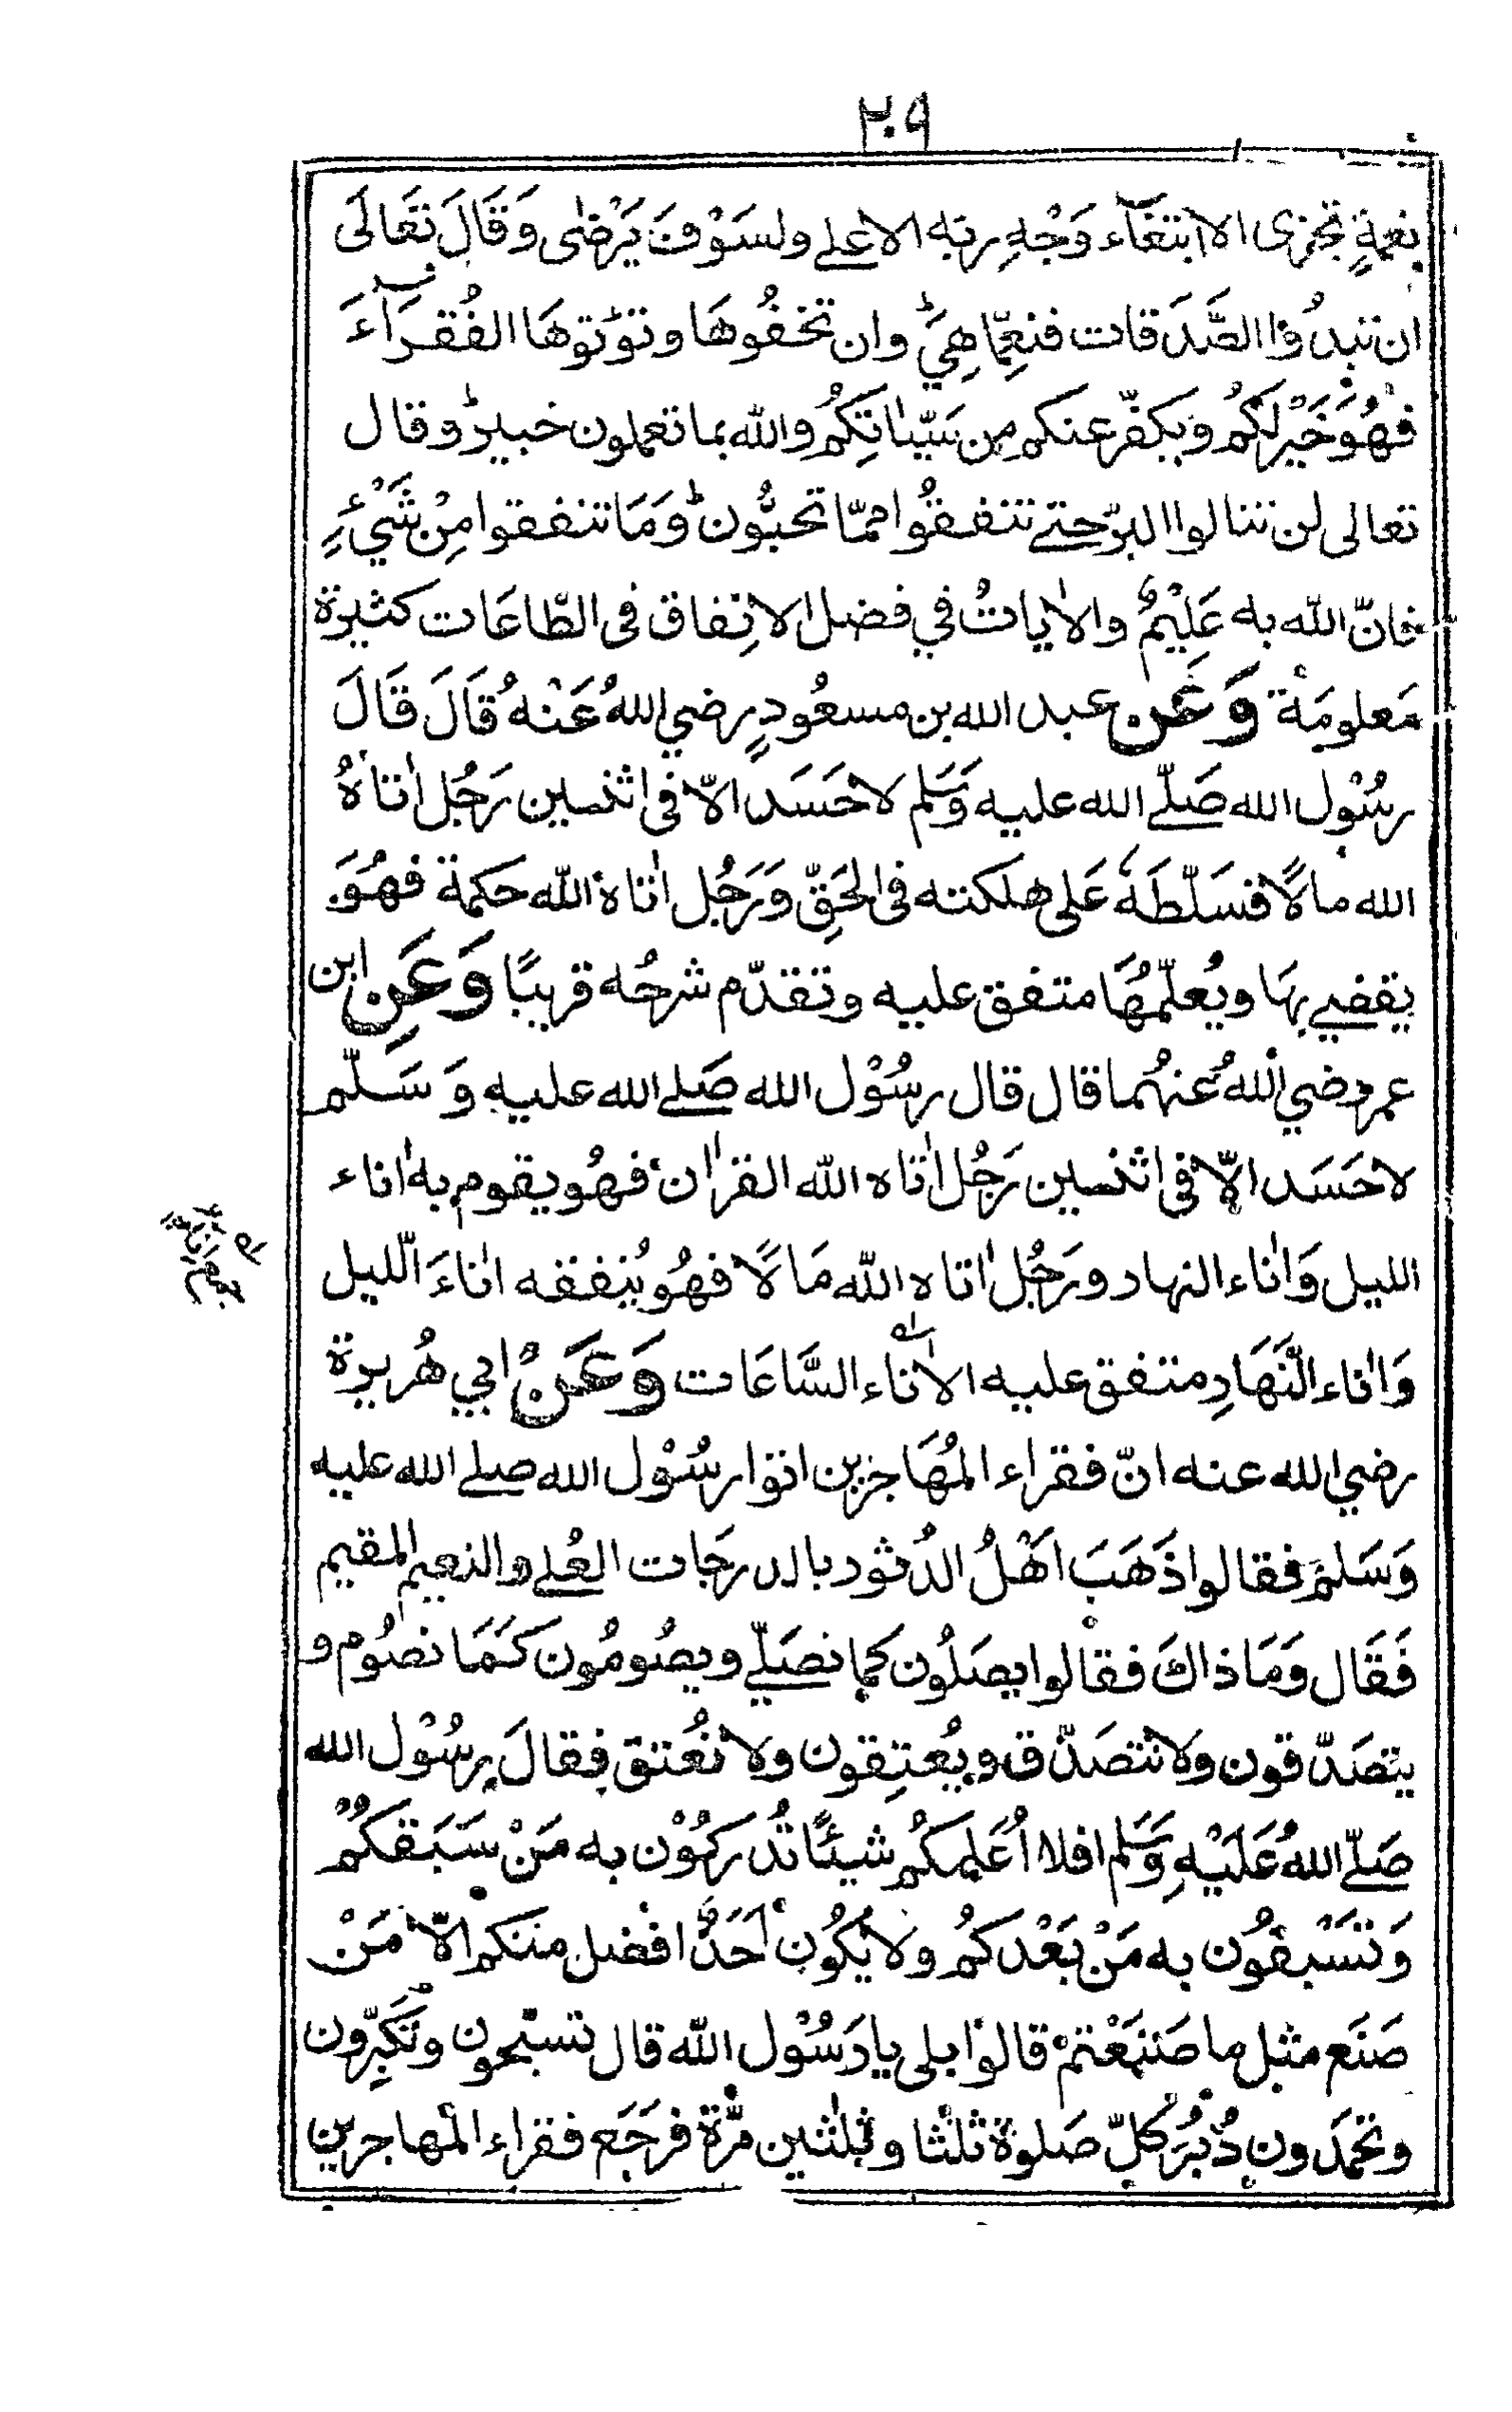 ٢٠٩
نِعمةٍ تجزى الا ابتغآء وَجْهِ ربّه الاعلے ولسَوْفَ يَرْضٰى وَقَالَ تَعَالَى
ان تبدُوا الصَّدَقات فنعِمّا هِيَ ط وان تخفُوهَا وتؤتوهَا الفُقَرَآءَ
فهُوَ خَيْرٌ لكُم ويكفّر عنكم مِن سَيّاٰتِكُمْ والله بما تعملون خبيرٌ وقال
تعالى لن تنالوا البرّ حتے تنفقُوا ممّا تحبُّون ط وَمَا تنفقوا مِنْ شَيْءٍ
فانّ الله به عَلِيْمٌ والاٰياتُ في فضل الانِفاق فى الطّاعَات كثيرة
مَعلومَة وَعَن عبد الله بن مسعُودٍ رضي اللهُ عَنْهُ قَالَ قَالَ
رسُوْل الله صَلّے الله عليه وَسَلم لا حَسَد الاّ فى اثنَين رَجُل اٰتاهُ
الله مالاً فسَلّطَهٗ عَلى هلكته فى الحَقِّ وَرَجُل اٰتاهُ الله حكمة فهُوَ
يقضِے بهَا ويُعلّمُهَا متفق عليه وتقدّم شرحُه قريبًا وَعَنِ ابن
عمر رضي اللهُ عنهُما قال قال رسُوْل الله صَلے الله عليهِ وَسَلّم
لا حَسَد الاّ فى اثنين رَجُل اٰتاه الله القراٰن فهُو يقوم به اٰناء
الليل وَاٰناء النهار ورَجُل اٰتاه الله مَالاً فهُو يُنفقه اٰناءَ الّليل
وَاٰناء النَّهَارِ متفق عليه الاٰناء السَّاعَات وَعَنْ ابي هُريرة
رضي الله عنه انّ فقراء المُهَاجرين اتوا رسُوْل الله صلے الله عليه
وَسَلمَ فقالوا ذَهَبَ اَهْلُ الدُثور بالدرجَات العُلے والنعيم المقيم
فَقَال وَمَا ذاكَ فقالوا يصَلُون كما نصَلّے ويصُومُون كَمَا نصُوم و
يتصَدّقون ولا نتصَدّق ويُعتِقون ولا نُعتق فقالَ رسُوْل الله
صَلّے اللهُ عَلَيْهِ وَسَلم افلا اُعَلمكُم شيئًا تُدْركُوْن به مَنْ سَبَقكُمْ
وَتَسْبقُون به مَنْ بَعْدكُم ولا يكُون اَحَدٌ افضل منكم الاّ مَنْ
صَنَع مثل ما صَنَعْتمْ قالوا بلى يا رَسُوْل الله قال تسبّحون وتكبِّرون
وتحمَدون دُبُرَ كلّ صَلوة ثلٰثا وثلٰثين مّرة فرجَع فقراء المُهاجرين